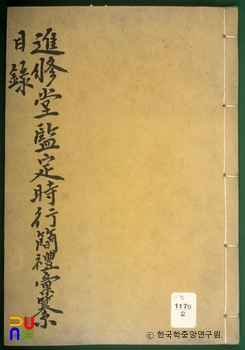 進修堂監定時行簡禮彙纂
目錄
117g
2
© 한국학중앙연구원